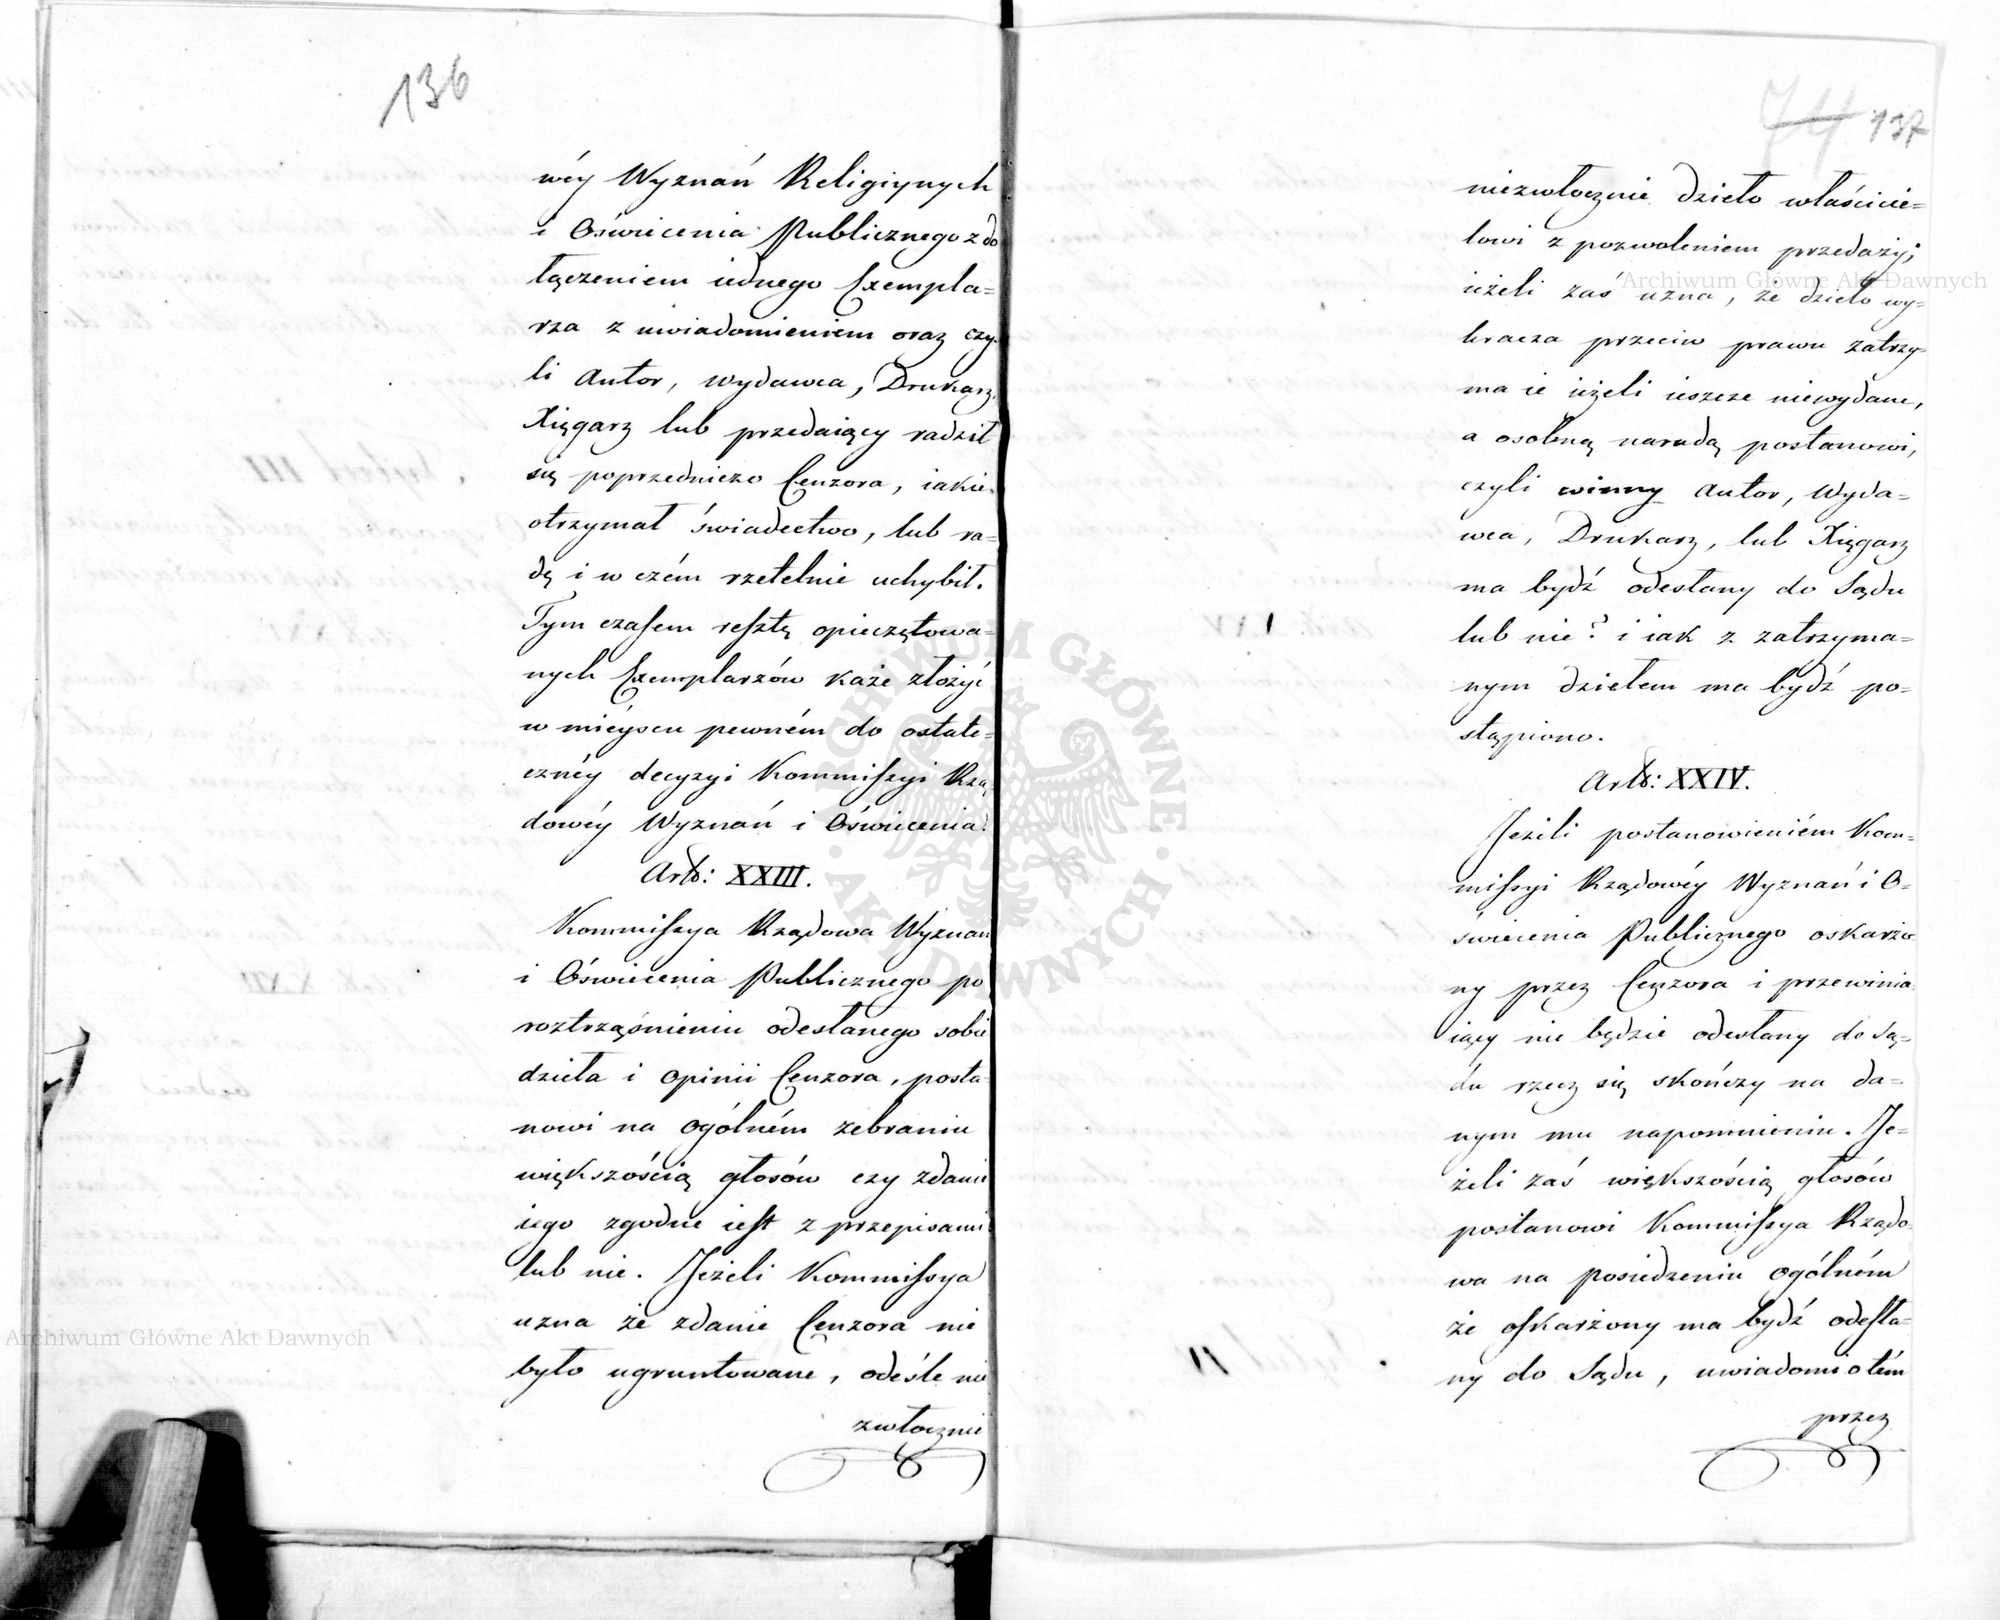 136
wéy Wyznań Religiynych
i Oświecenia Publicznego z do
łączeniem iednego Exempla=
rza z uwiadomieniem oraz czy=
li Autor, Wydawca, Drukarz,
Xięgarz lub przedaiący radził
się poprzedniczo Cenzora, iakie
otrzymał świadectwo, lub ra=
dę i w czém rzetelnie uchybił.
Tym czasem resztę opieczętowa=
nych Exemplarzów każe złożyć
w mieyscu pewném do ostate=
cznéy decyzyi Kommissyi Rzą
dowéy Wyznań i Oświecenia.
Art: XXIII.
Kommissya Rządowa Wyznań
i Oświecenia Publicznego po
roztrząśnieniu odesłanego sobie
dzieła i opinii Cenzora, posta
nowi na ogólném zebraniu
większością głosów czy zdanie
iego zgodne iest z przepisami
lub nie. Jeżeli Kommissya
uzna że zdanie Cenzora nie
było ugruntowane, odeśle nie
zwłocznie
74 137
niezwłocznie dzieło właścicie=
lowi z pozwoleniem przedaży;
ieżeli zaś uzna, że dzieło wy=
kracza przeciw prawu zatrzy=
ma ie ieżeli ieszcze niewydane,
a osobną naradą postanowi,
czyli winny Autor, Wyda=
wca, Drukarz, lub Xięgarz
ma bydź odesłany do Sądu
lub nie? i iak z zatrzyma=
nym dziełem ma bydź po=
stąpiono.
Art: XXIV.
Jeżeli postanowieniém Kom=
missyi Rządowéy Wyznań i O=
świecenia Publicznego oskarżo
ny przez Cenzora i przewinia
iący nie będzie odesłany do Są=
du rzecz się skończy na da=
nym mu napomnieniu. Je=
żeli zaś większością głosów
postanowi Kommissya Rządo=
wa na posiedzeniu ogólném
że oskarżony ma bydź odesła=
ny do Sądu, uwiadomi o tém
przez
Archiwum Główne Akt Dawnych
Archiwum Główne Akt Dawnych
ARCHIWUM GŁÓWNE · AKT DAWNYCH ·